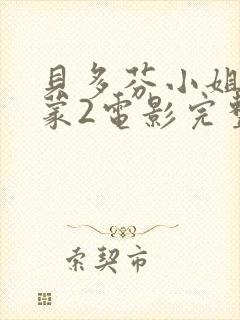 貝多芬小姐
蒙2電影完整
索契市